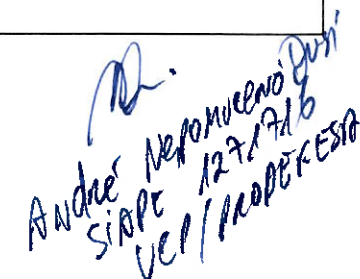 André Nepomuceno Dusi
SIAPE 1271716
UCP/PROPEKESTA